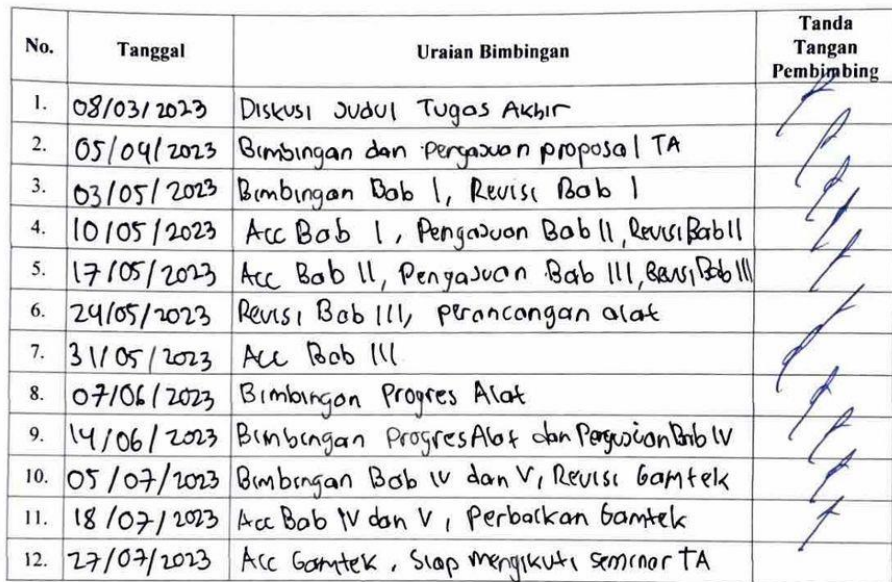 No. Tanggal Uraian Bimbingan Tanda Tangan Pembimbing
1. 08/03/2023 Diskusi Judul Tugas Akhir
2. 05/04/2023 Bimbingan dan Pengajuan proposal TA
3. 03/05/2023 Bimbingan Bab I, Revisi Bab I
4. 10/05/2023 Acc Bab I, Pengajuan Bab II, Revisi Bab II
5. 17/05/2023 Acc Bab II, Pengajuan Bab III, Revisi Bab III
6. 24/05/2023 Revisi Bab III, perancangan alat
7. 31/05/2023 Acc Bab III
8. 07/06/2023 Bimbingan Progres Alat
9. 14/06/2023 Bimbingan Progres Alat dan Pengujian Bab IV
10. 05/07/2023 Bimbingan Bab IV dan V, Revisi Gamtek
11. 18/07/2023 Acc Bab IV dan V, Perbaikan Gamtek
12. 27/07/2023 Acc Gamtek, Siap mengikuti seminar TA